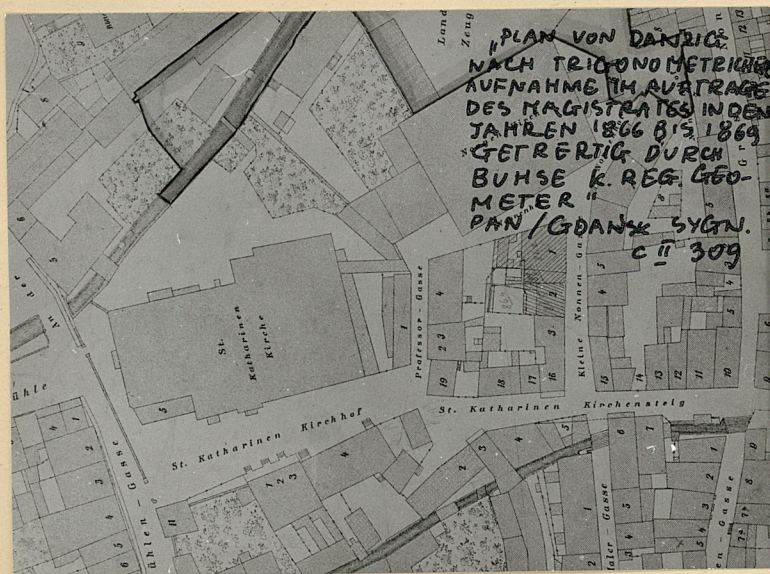 „PLAN VON DANZIG
NACH TRIGONOMETRICHER
AUFNAHME IM AUFTRAGE
DES MAGISTRATES IN DEN
JAHREN 1866 BIS 1869
GETRERTIG DURCH
BUHSE K. REG. GEO-
METER"
PAN/GDAŃSK SYGN.
C II 309
Land
Zeug
An der
ühle
St.
Katharinen
Kirche
Professor-Gasse
Kleine Nonnen-Ga
St. Katharinen Kirchensteig
St. Katharinen Kirchhof
ühlen-Gasse
taler Gasse
en-Gasse
1
4
2 3
19
18
17
16
3
2
1
15
14
13
12
11
10
5
4
5
1
2
3
4
2
3
4
5
6
7